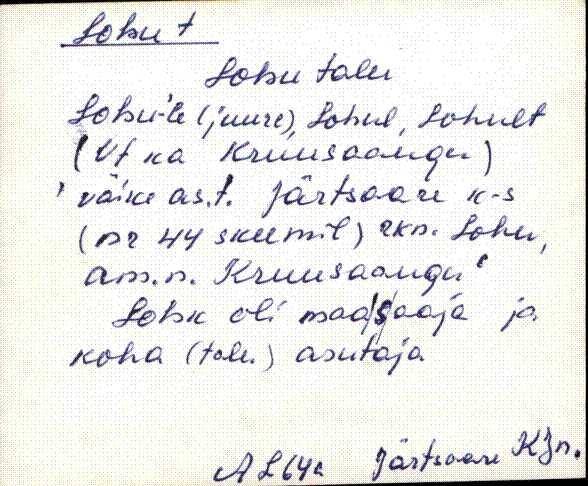 Sohu t
Sohu talu
Sohu-le (juure), Sohul, Sohult
(Vt ka Kruusaaugu)
' väike as.t. Järtsaare k-s
(nr 44 skeemil) rkn. Sohu,
am.n. Kruusaaugu'
Sohk oli maa/saaja ja
koha (talu) asutaja
AL64a Järtsaare KJn.